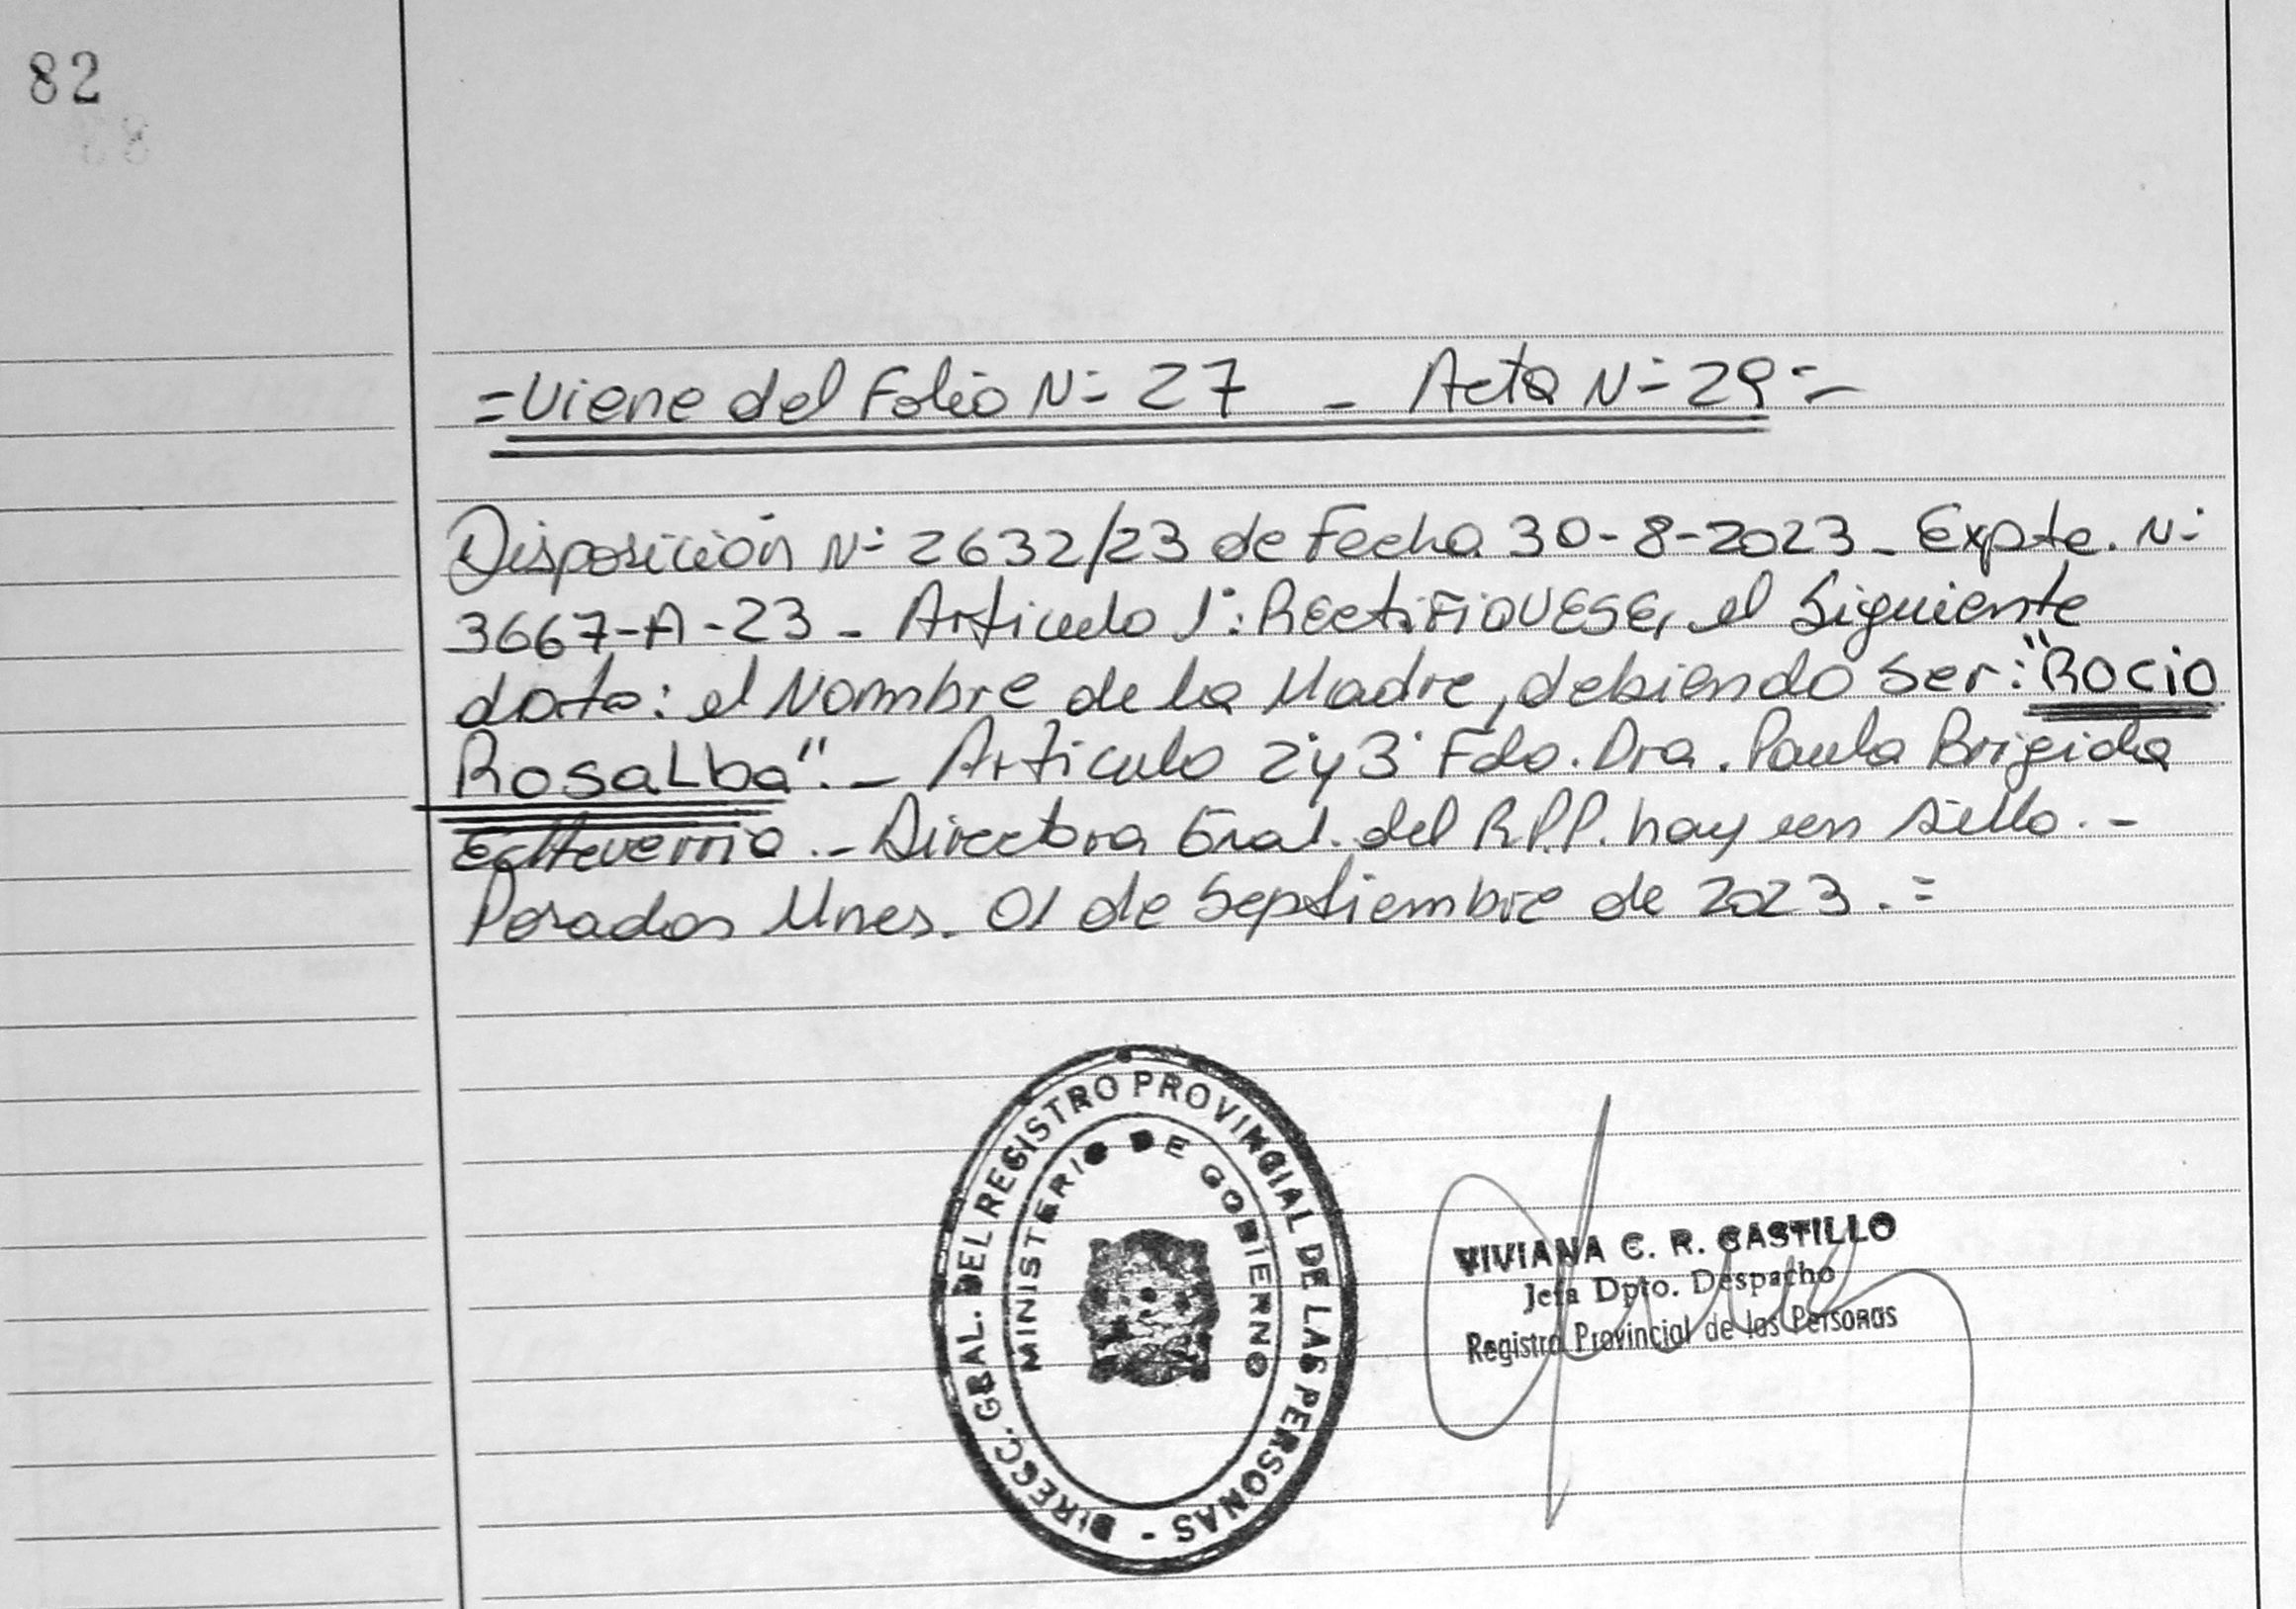 82
=Viene del Folio N= 27 - Acta N= 29=-
Disposición N= 2632/23 de Fecha 30-8-2023- Expte. N=
3667-A-23- Artículo 1°: RectiFiQUESE, el Siguiente
dato: el Nombre de la Madre, debiendo ser: "Rocio
RosaLba".- Artículo 2°y3° Fdo. Dra. Paula Brigida
Echeverria.- Directora Gral. del R.P.P. hay un sello.-
Posadas Mnes. 01 de Septiembre de 2023.=
DIRECC. GRAL. DEL REGISTRO PROVINCIAL DE LAS PERSONAS -
MINISTERIO DE GOBIERNO
VIVIANA C. R. CASTILLO
Jefa Dpto. Despacho
Registro Provincial de las Personas